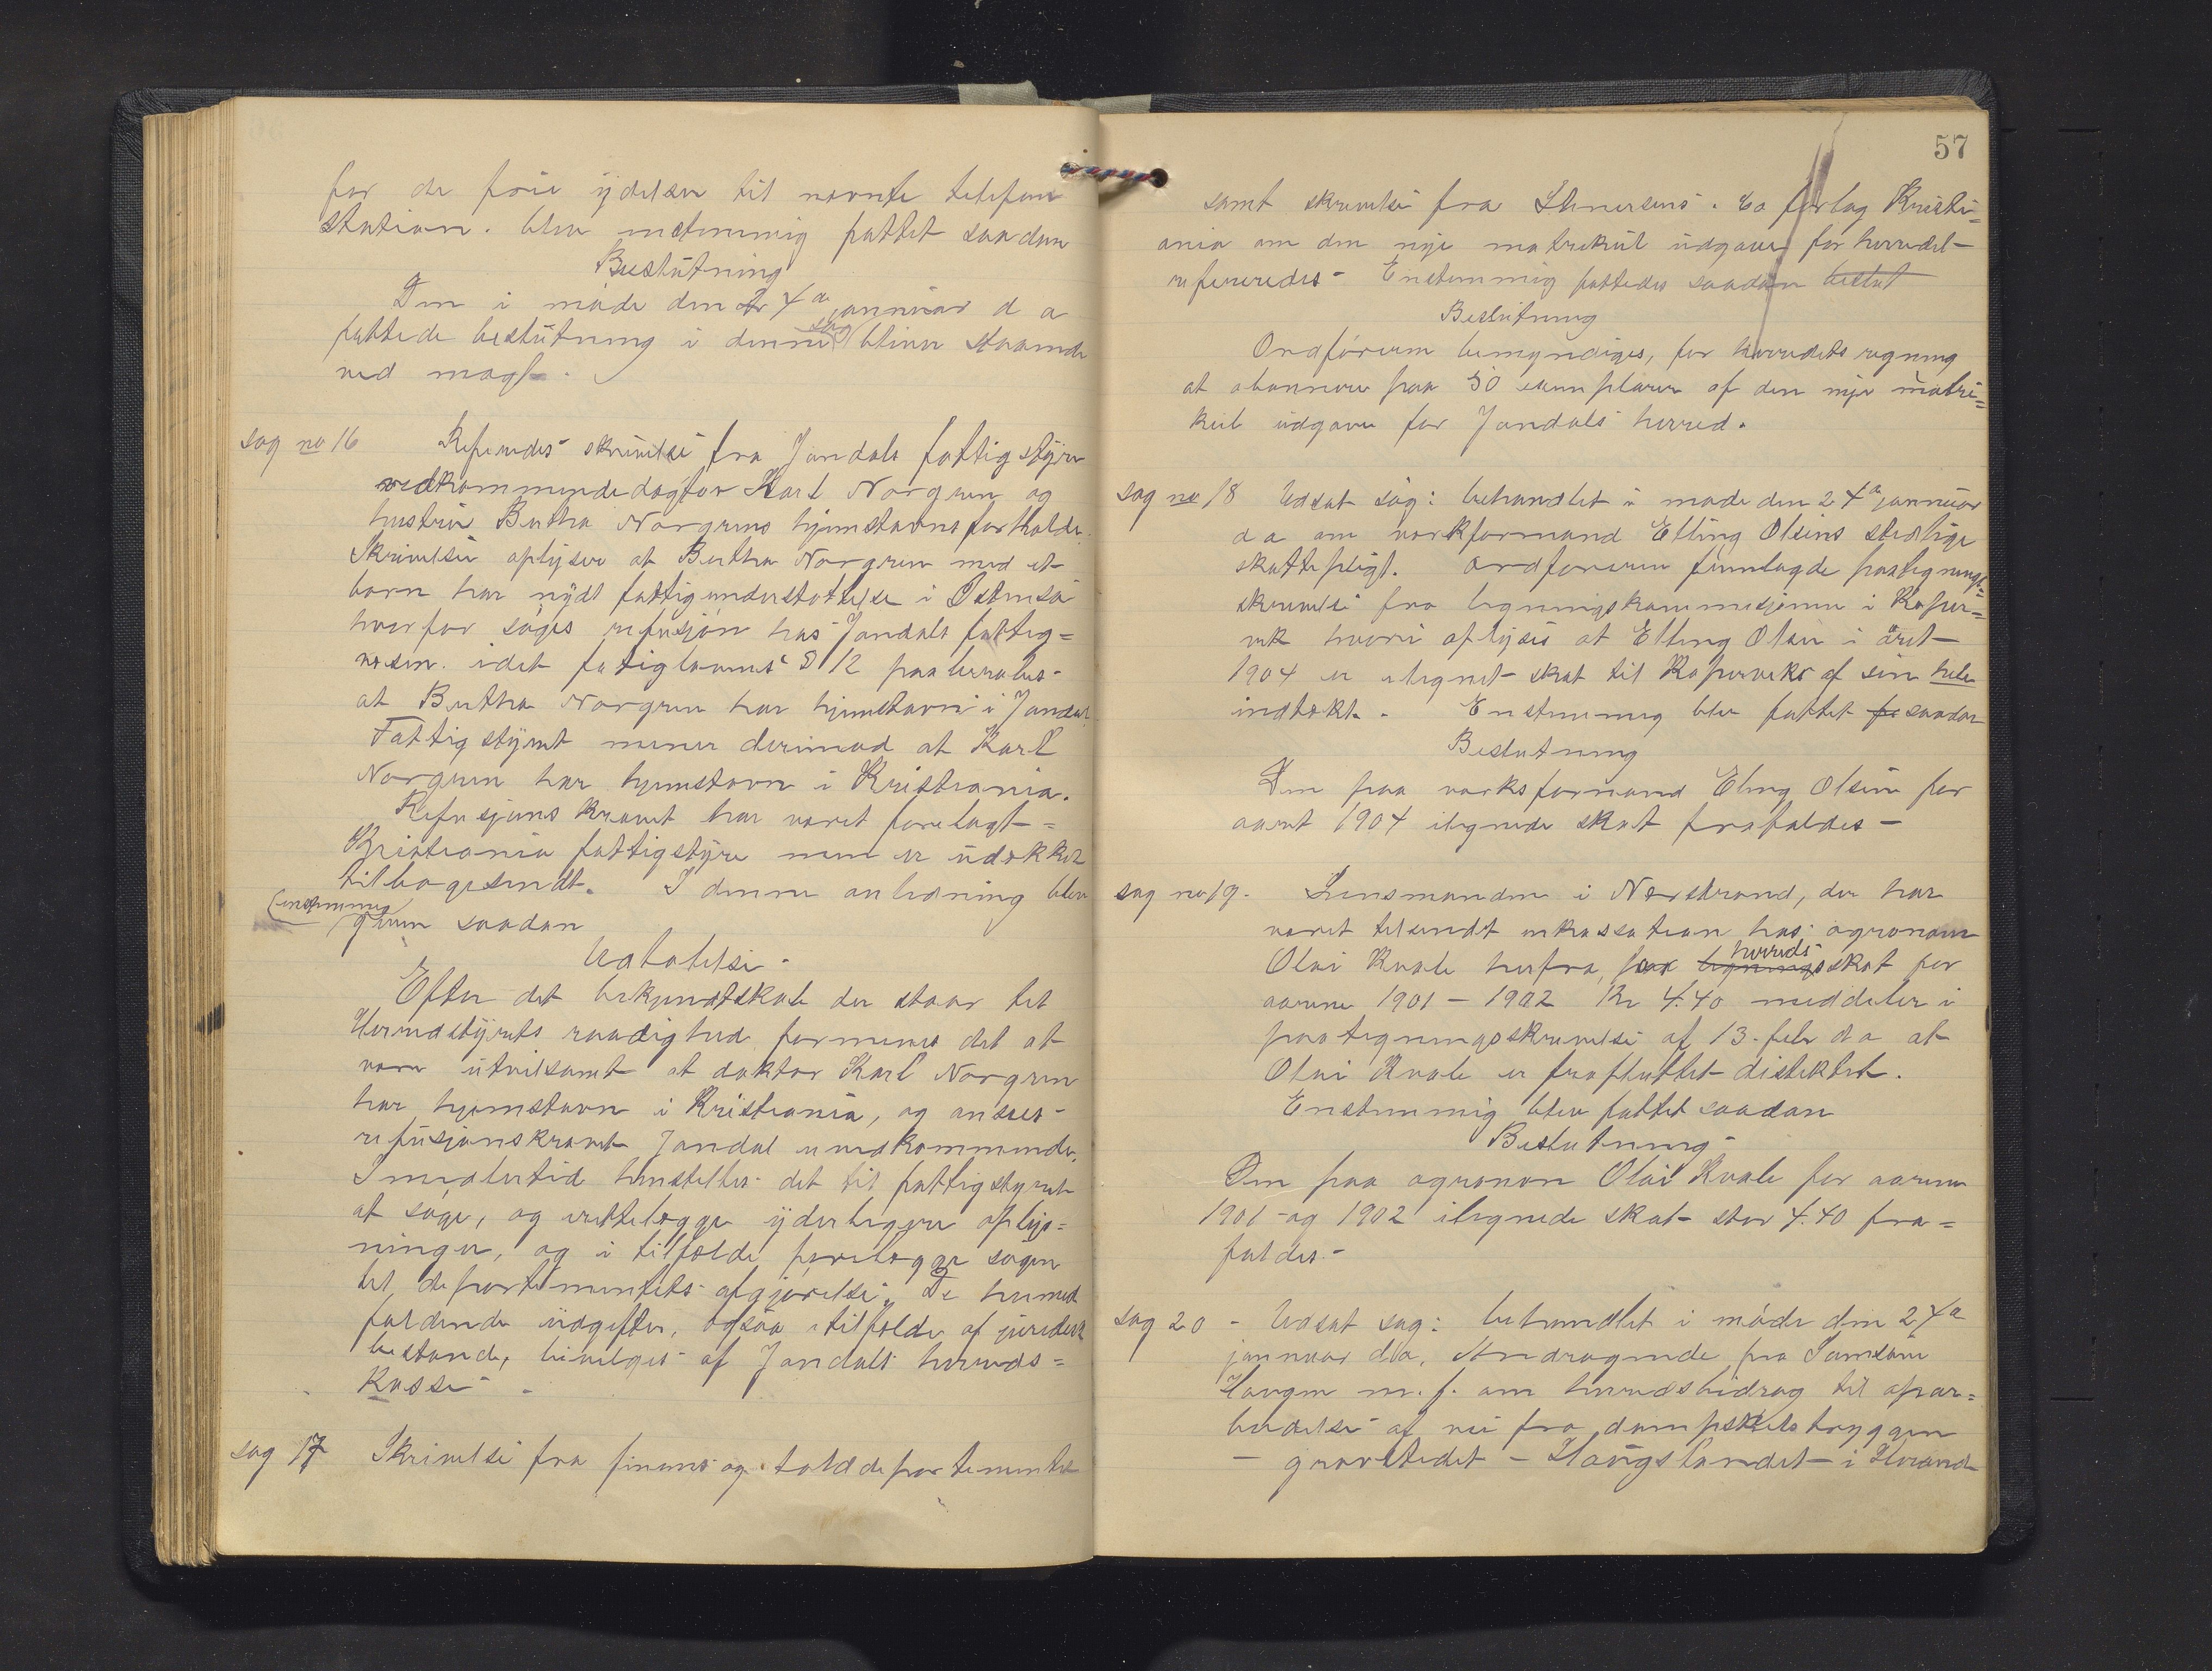 for de frie ydelser til nævnte telefon
station. blev enstemmig fattet saadan
Beslutning
Den i møde den 24de januar d a
fattede beslutning i denne sag bliver staaende
ved magt.
sag no 16 Referedes skrivelse fra Jondals fattigstyre
vedkommende dogtor Karl Norgren og
hustru Bertha Norgrens hjemstavnsforholde.
Skrivelsen oplyser at Bertha Norgren med et
barn har nydt fattigunderstøttelse i Østensø
hvorfor søges refusjon hos Jondals fattig=
vesen. idet fatiglovens § 12 paaberabes
at Bertha Norgren har hjemstavn i Jondal
Fattigstyret mener derimod at Karl
Norgren har hjemstavn i Kristiania.
Refusjons kravet har været forelagt =
Kristiania fattigstyre men er udækket
tilbagesendt. I denne anledning blev
(enstemmig) given saadan
Udtalelse -
Efter det bekjendtskab der staar til
Herredstyrets raadighed formenes det at
være utvilsomt at doktor Karl Norgren
har hjemstavn i Kristiania, og ansees
refusjonskravet Jondal uvedkommende.
Imidlertid henstilles det til fattigstyret
at søge, og tilrettelægge yderligere oplys=
ninger, og i tilfælde forelægge sagen
til departementets afgjørelse. De hermed
faldende udgifter, ogsaa i tilfælde af juridisk
bestand, bevilges af Jondals herreds=
kasse -
sag 17 Skrivelse fra finans og tolddepartementet
57
samt skrivelse fra Stenersens & Co forlag Kristi=
ania om den nye matrikul udgave for herredet
refereredes - Enstemmig fattedes saadan beslut
Beslutning
Ordføreren bemyndiges, for herredets regning
at abonnere paa 50 exemplarer af den nye matri=
kul udgave for Jondals herred.
sag no 18 Udsat sag: behandlet i møde den 24de januar
d a om værkformand Elling Olsens stedlige
skattepligt. Ordføreren fremlagde paategnings=
skrivelse fra ligningskommisjonen i Koper=
vik hvori oplyses at Elling Olsen i året
1904 er ilignet skat til Kopervik af sin hele
indtækt. - Enstemmig blev fattet fo saadan
Beslutning
Den paa værksformand Eling Olsen for
aaret 1904 ilignede skat frafaldes -
sag no 19. Lensmanden i Nærstrand, der har
været tilsendt inkassation hos agronom
Olai Kvale herfra, paa ligningsskat herreds for
aarene 1901 - 1902 Kr 4.40 meddeler i
paategningsskrivelse af 13. febr d a at
Olai Kvale er fraflyttet distiktet.
Enstemmig blev fattet saadan
Beslutning -
Den paa agronom Olai Kvale for aarene
1901 - og 1902 ilignede skat stor 4.40 fra=
faldes -
sag 20 - Udsat sag: behandlet i møde den 24de
januar d a, Andragende fra Samson
Haugen m. f. om herredsbidrag til opar=
beidelse af vei fra dampskibsbryggen
- gravstedet - Haugslandet - i Herand